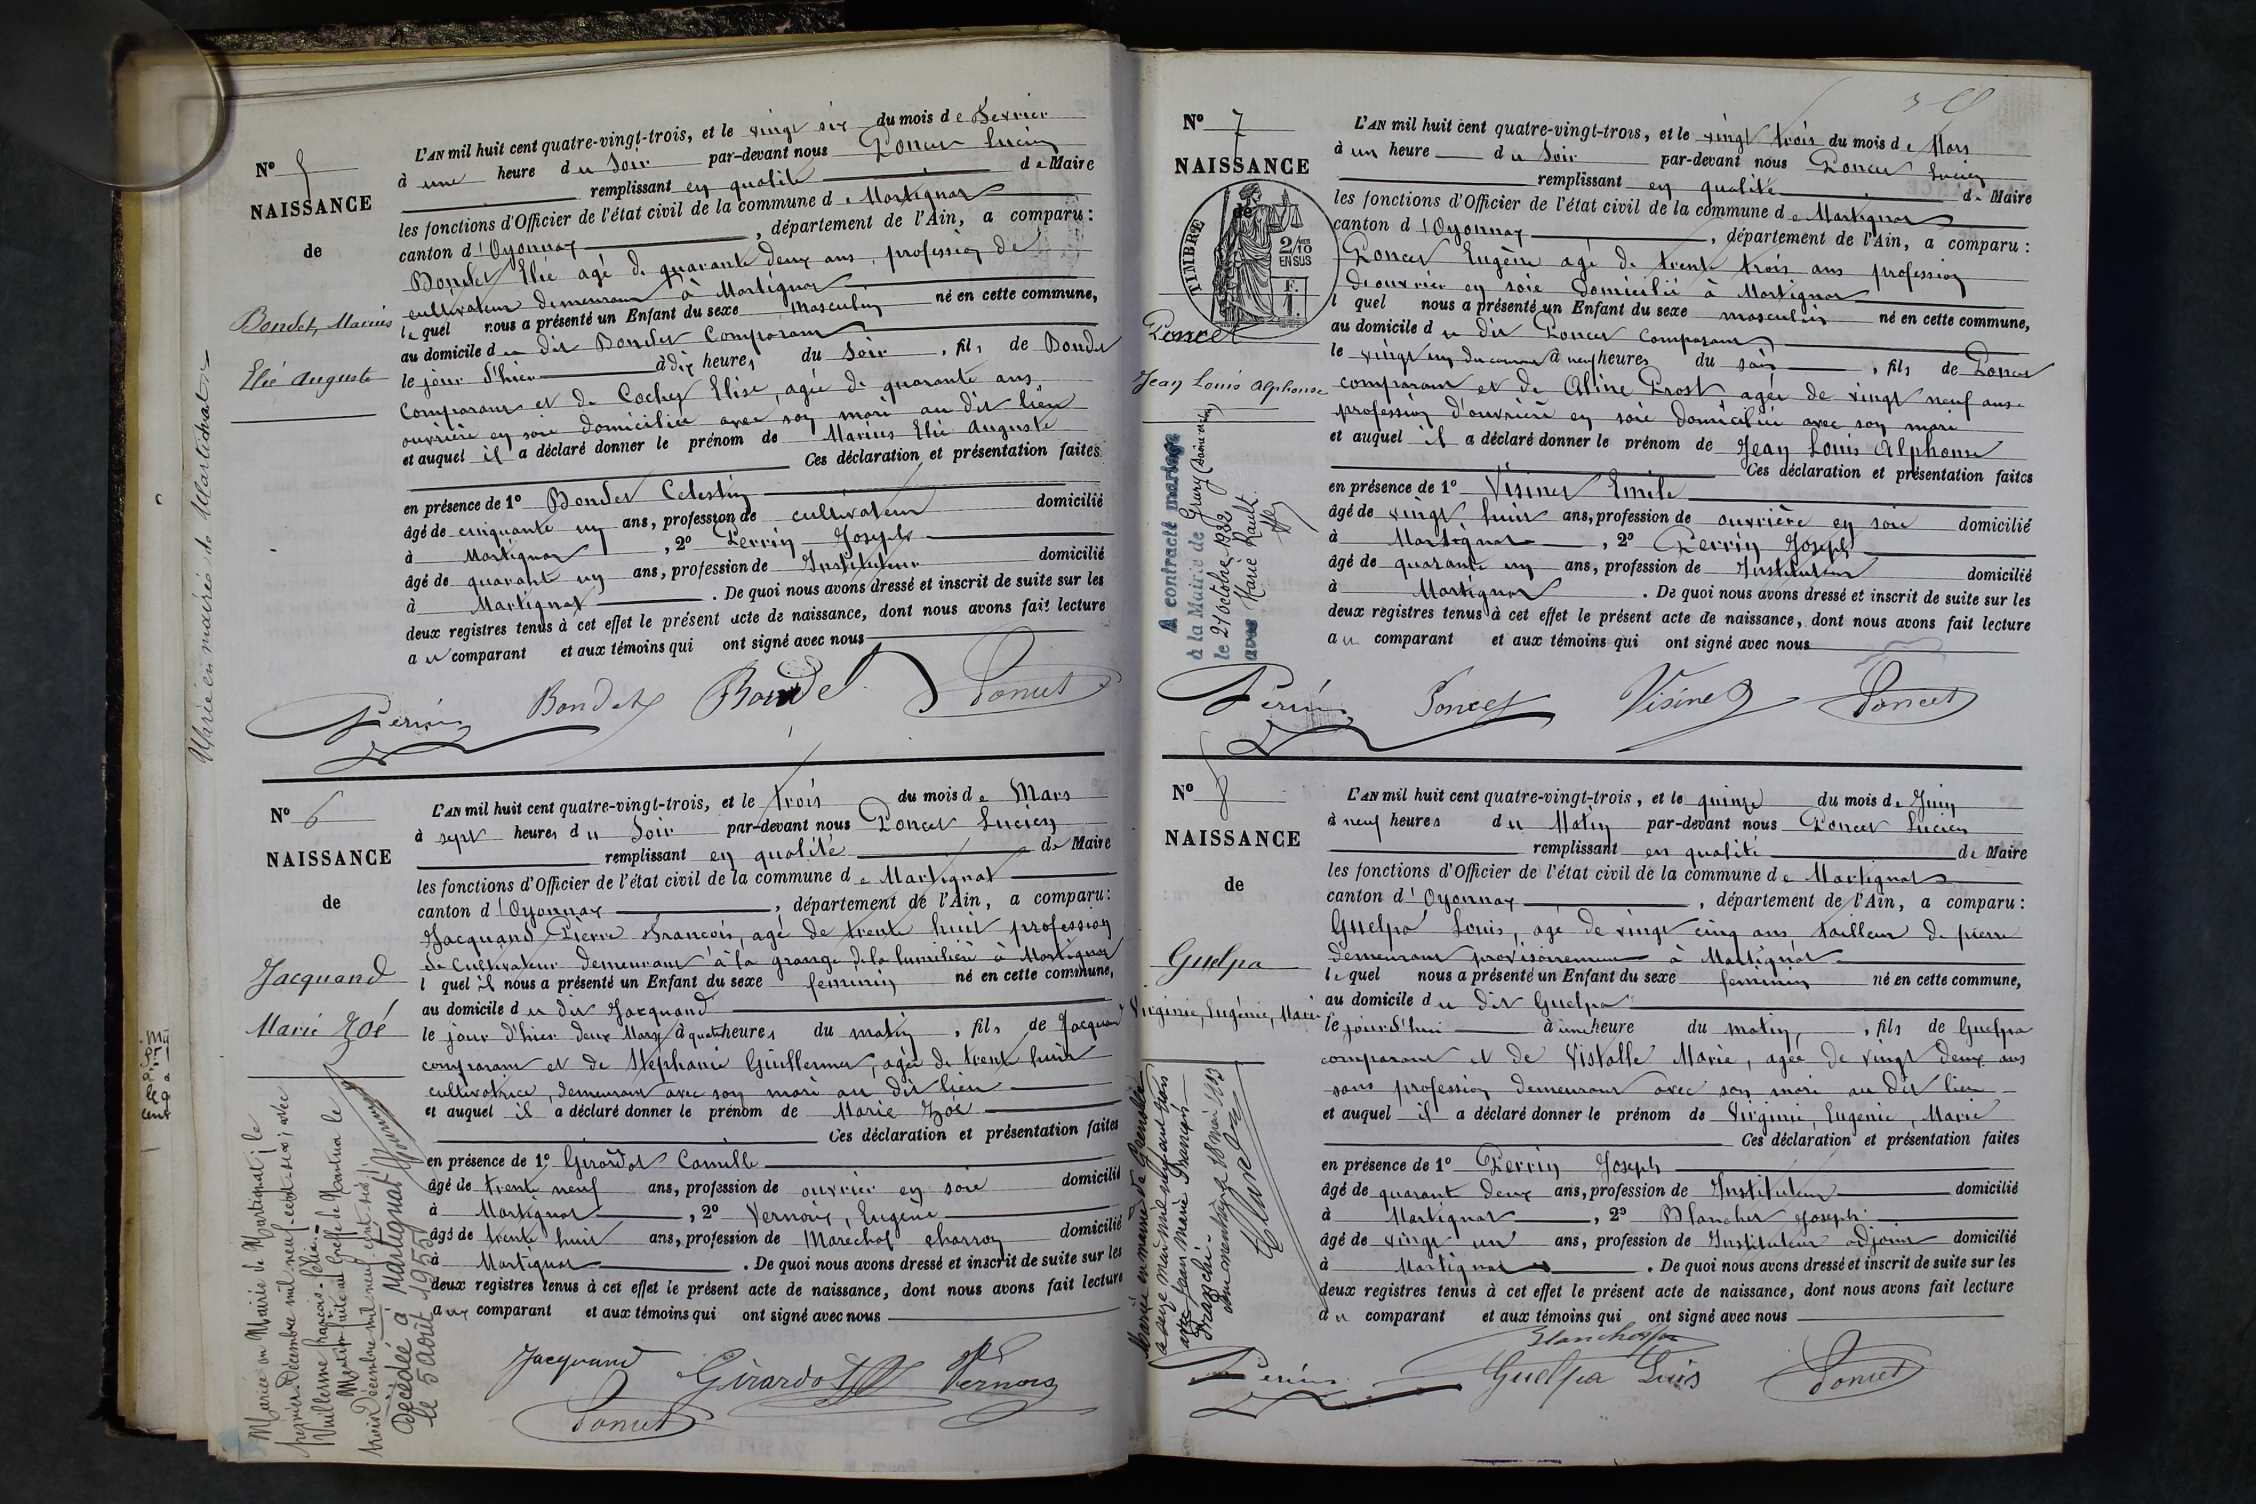 N° 5
NAISSANCE
de
Bondet, Marius
Elie Auguste
L'AN mil huit cent quatre-vingt-trois, et le vingt six du mois de Février
à une heure du Soir par-devant nous Poncet Lucien
remplissant en qualité de Maire
les fonctions d'Officier de l'état civil de la commune de Martignat
canton d'Oyonnax, département de l'Ain, a comparu:
Bondet Elie agé de quarante deux ans, profession de
cultivateur demeurant à Martignat
lequel nous a présenté un Enfant du sexe masculin né en cette commune,
au domicile du dit Bondet Comparant
le jour d'hier à dix heures du Soir, fils de Bondet
Comparant et de Cochet Elise, agée de quarante ans,
ouvrière en soie domiciliée avec son mari au dit lieu
et auquel il a déclaré donner le prénom de Marius Elie Auguste
Ces déclaration et présentation faites
en présence de 1° Bondet Celestin
âgé de cinquante un ans, profession de cultivateur domicilié
à Martignat, 2° Perrin Joseph
âgé de quarante un ans, profession de Instituteur domicilié
à Martignat. De quoi nous avons dressé et inscrit de suite sur les
deux registres tenus à cet effet le présent acte de naissance, dont nous avons fait lecture
au comparant et aux témoins qui ont signé avec nous
Perrin Bondet Bondet Poncet
N° 6
NAISSANCE
de
Jacquand
Marie Zoé
L'AN mil huit cent quatre-vingt-trois, et le trois du mois de Mars
à sept heures du Soir par-devant nous Poncet Lucien
remplissant en qualité de Maire
les fonctions d'Officier de l'état civil de la commune de Martignat
canton d'Oyonnax, département de l'Ain, a comparu:
Jacquand Pierre François, agé de trente huit profession
de Cultivateur demeurant à la grange de la à Martignat
lequel il nous a présenté un Enfant du sexe feminin né en cette commune,
au domicile du dit Jacquand
le jour d'hier deux Mars à quatre heures du matin, fils de Jacquand
comparant et de Stephanie Guillermet, agée de trente huit
cultivatrice, demeurant avec son mari au dit lieu
et auquel il a déclaré donner le prénom de Marie Zoé
Ces déclaration et présentation faites
en présence de 1° Girardot Camille
âgé de trente neuf ans, profession de ouvrier en soie domicilié
à Martignat, 2° Vernoix, Eugène
âgé de trente huit ans, profession de Marechal charron domicilié
à Martignat. De quoi nous avons dressé et inscrit de suite sur les
deux registres tenus à cet effet le présent acte de naissance, dont nous avons fait lecture
aux comparant et aux témoins qui ont signé avec nous
Jacquand Girardot Vernoix
Poncet
Mariée en Mairie de Martignat, le
premier Décembre mil neuf-cent-six, avec
Vuillerme François
Mention faite au Greffe de Nantua le
trois Décembre mil neuf cent six
Décédée à Martignat
le 5 août 1955
N° 7
NAISSANCE
de
TIMBRE
2/10
EN SUS
Poncet
Jean Louis Alphonse
A contracté mariage
à la Mairie de
le 21 octobre 1932
avec Marie Rault
L'AN mil huit cent quatre-vingt-trois, et le vingt trois du mois de Mars
à un heure du Soir par-devant nous Poncet Lucien
remplissant en qualité de Maire
les fonctions d'Officier de l'état civil de la commune de Martignat
canton d'Oyonnax, département de l'Ain, a comparu:
Poncet Eugène agé de trente trois ans profession
d'ouvrier en soie domicilié à Martignat
lequel nous a présenté un Enfant du sexe masculin né en cette commune,
au domicile du dit Poncet Comparant
le vingt un du courant à neuf heures du soir, fils de Poncet
comparant et de Alline Prost, agée de vingt neuf ans
profession d'ouvrière en soie domiciliée avec son mari
et auquel il a déclaré donner le prénom de Jean Louis Alphonse
Ces déclaration et présentation faites
en présence de 1° Visinet Emile
âgé de vingt huit ans, profession de ouvrière en soie domicilié
à Martignat, 2° Perrin Joseph
âgé de quarante un ans, profession de Instituteur domicilié
à Martignat. De quoi nous avons dressé et inscrit de suite sur les
deux registres tenus à cet effet le présent acte de naissance, dont nous avons fait lecture
au comparant et aux témoins qui ont signé avec nous
Perrin Poncet Visinet Poncet
N° 8
NAISSANCE
de
Guelpa
Virginie, Eugénie, Marie
L'AN mil huit cent quatre-vingt-trois, et le quinze du mois de Juin
à neuf heures du Matin par-devant nous Poncet Lucien
remplissant en qualité de Maire
les fonctions d'Officier de l'état civil de la commune de Martignat
canton d'Oyonnax, département de l'Ain, a comparu:
Guelpa Louis, agé de vingt cinq ans, tailleur de pierre
demeurant provisoirement à Martignat
lequel nous a présenté un Enfant du sexe feminin né en cette commune,
au domicile du dit Guelpa
le jourd'hui à une heure du matin, fils de Guelpa
comparant et de Vistalle Marie, agée de vingt deux ans
sans profession demeurant avec son mari au dit lieu
et auquel il a déclaré donner le prénom de Virginie, Eugenie, Marie
Ces déclaration et présentation faites
en présence de 1° Perrin Joseph
âgé de quarant deux ans, profession de Instituteur domicilié
à Martignat, 2° Blanchet Joseph
âgé de vingt un ans, profession de Instituteur adjoint domicilié
à Martignat. De quoi nous avons dressé et inscrit de suite sur les
deux registres tenus à cet effet le présent acte de naissance, dont nous avons fait lecture
au comparant et aux témoins qui ont signé avec nous
Blanchet
Perrin Guelpa Luis Poncet
Mariée en mairie de Grenoble
avec Jean Marie François
18 mai 1923
Mariée en mairie de Martignat